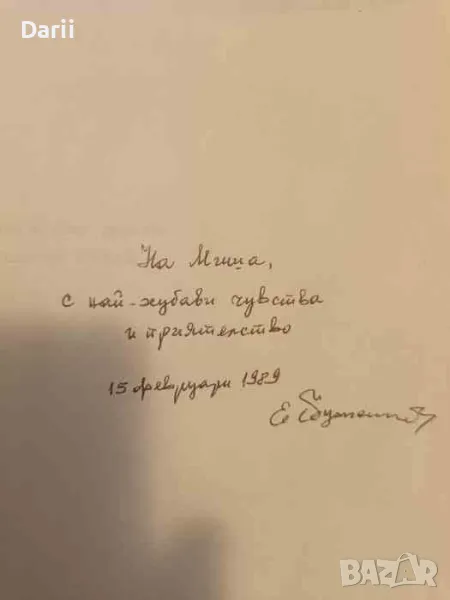 Darii
На Мица,
с най-хубави чувства
и приятелство
15 февруари 1989
Е.
BAZAR